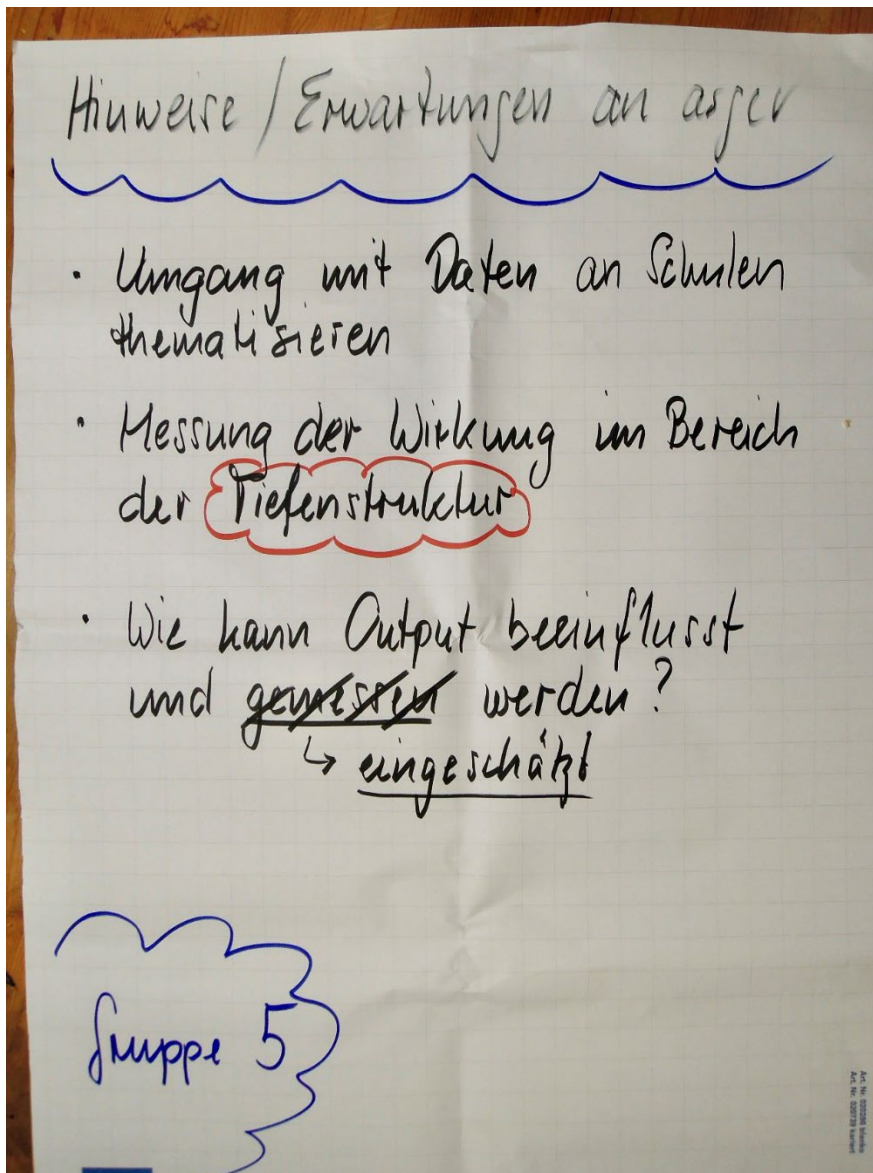 Hinweise / Erwartungen an asger
· Umgang mit Daten an Schulen
thematisieren
· Messung der Wirkung im Bereich
der Tiefenstruktur
· Wie kann Output beeinflusst
und gemessen werden?
↳ eingeschätzt
Gruppe 5
Art. Nr. 020286 blanko
Art. Nr. 020739 kariert